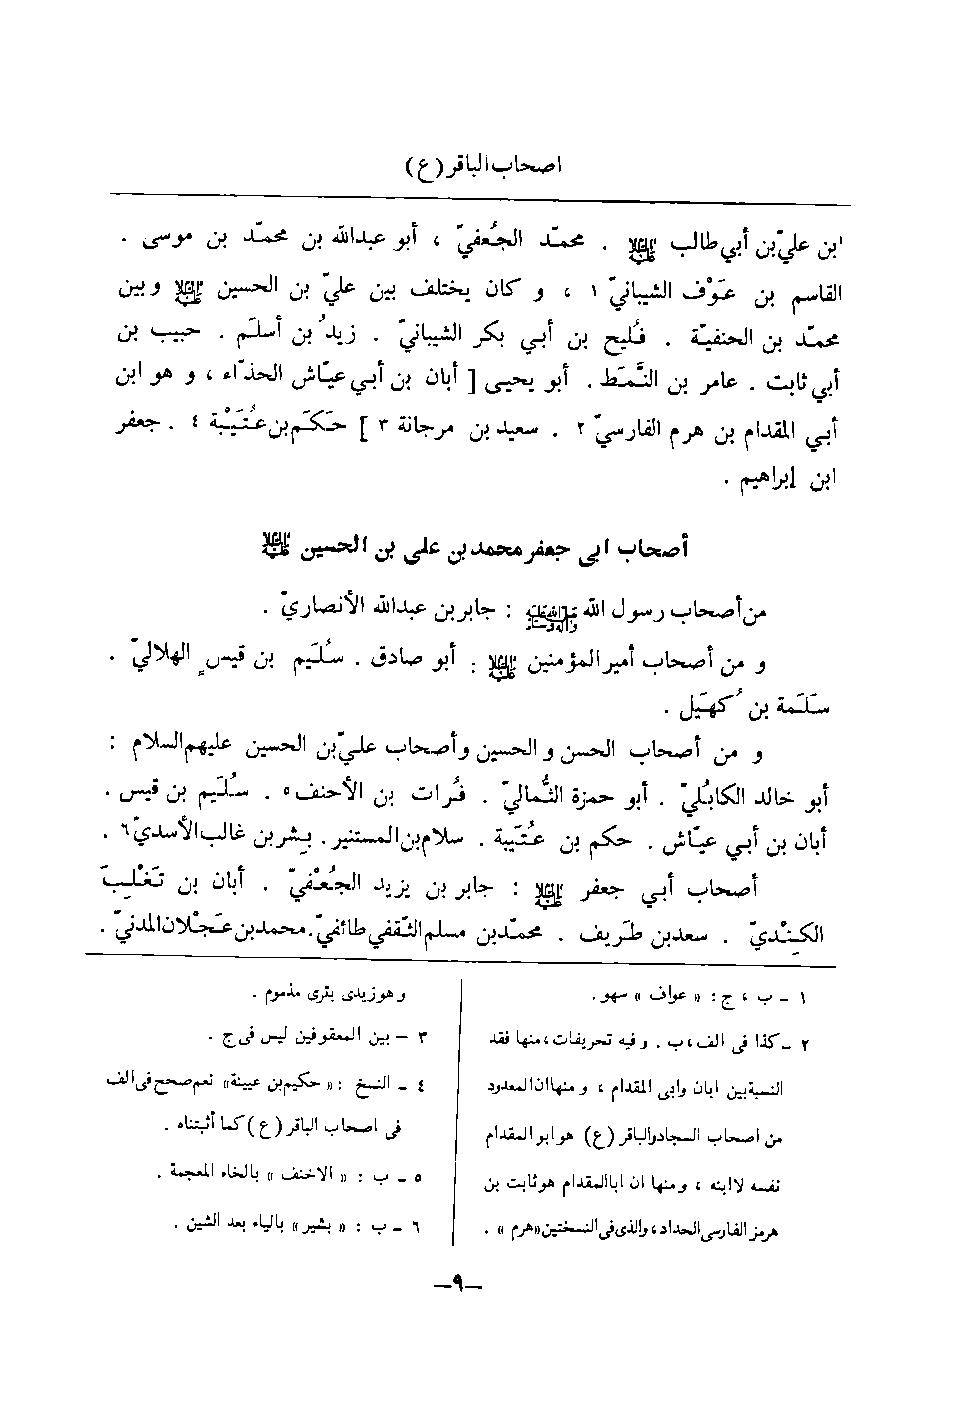 اصحاب الباقر (ع)
ابن عليّ بن أبي طالب عليه السلام . محمّد الجُعفيّ ، أبو عبدالله بن محمّد بن موسى .
القاسم بن عَوْف الشيبانيّ ١ ، و كان يختلف بين عليّ بن الحسين عليه السلام وبين
محمّد بن الحنفيّة . فُليح بن أبي بكر الشيبانيّ . زيدُ بن أسلَم . حبيب بن
أبي ثابت . عامر بن النَّمَط . أبو يحيى [ أبان بن أبي عيّاش الحذّاء ، و هو ابن
أبي المقدام بن هرم الفارسيّ ٢ . سعيد بن مرجانة ٣ ] حَكَم بن عُتَيْبة ٤ . جعفر
ابن إبراهيم .
أصحاب ابى جعفر محمد بن على بن الحسين عليه السلام
من أصحاب رسول الله صلى الله عليه وآله وسلم : جابر بن عبدالله الأنصاريّ .
و من أصحاب أمير المؤمنين عليه السلام : أبو صادق . سُلَيم بن قيسٍ الهلاليّ .
سَلَمة بن كُهَيل .
و من أصحاب الحسن و الحسين وأصحاب عليّ بن الحسين عليهم السلام :
أبو خالد الكابُليّ . أبو حمزة الثُّماليّ . فُرات بن الأحنف ٥ . سُلَيم بن قيس .
أبان بن أبي عيّاش . حكم بن عُتَيبة . سلام بن المستنير . بِشر بن غالب الأسديّ ٦ .
أصحاب أبي جعفر عليه السلام : جابر بن يزيد الجُعْفيّ . أبان بن تَغْلِبَ
الكِنْديّ . سعد بن طَريف . محمّد بن مسلم الثَّقفي طائفيّ . محمد بن عَجْلان المدنيّ .
١ - ب ، ج : « عواف » سهو .
٢ - كذا فى الف ، ب . و فيه تحريفات ، منها فقد
النسبة بين ابان وابى المقدام ، و منها ان المعدود
من اصحاب السجاد والباقر (ع) هو ابو المقدام
نفسه لا ابنه ، و منها ان ابا المقدام هو ثابت بن
هرمز الفارسى الحداد ، والذى فى النسختين «هرم » .
و هو زيدى بترى مذموم .
٣ - بين المعقوفين ليس فى ج .
٤ - النسخ : « حكيم بن عيينة » نعم صحح فى الف
فى اصحاب الباقر (ع) كما أثبتناه .
٥ - ب : « الاخنف » بالخاء المعجمة .
٦ - ب : « بشير » بالياء بعد الشين .
-٩-